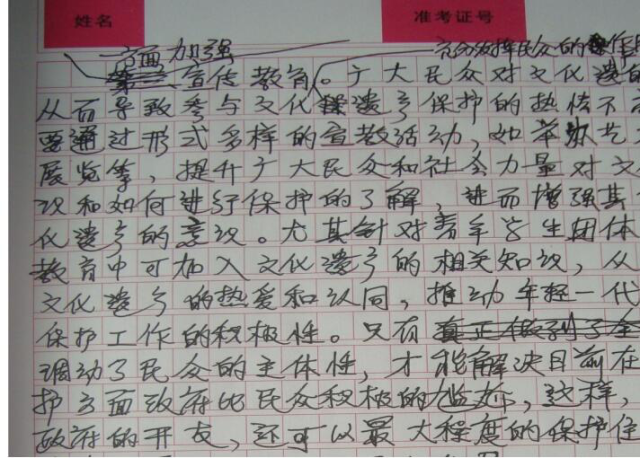 姓名 准考证号
一方面加强 充分发挥民众的作用
宣传教育。广大民众对文化遗
从而导致参与文化遗产保护的热情不
要通过形式多样的宣教活动，如举办艺
展览等，提升广大民众和社会力量对文
识和如何进行保护的了解，进而增强其
化遗产的意识。尤其针对青年学生团体
教育中可加入文化遗产的相关知识，从
文化遗产的热爱和认同，推动年轻一代
保护工作的积极性。只有
调动了民众的主体性，才能解决目前在
护方面政府比民众积极的尴尬，这样，
政府的开支，还可以最大程度的保护住